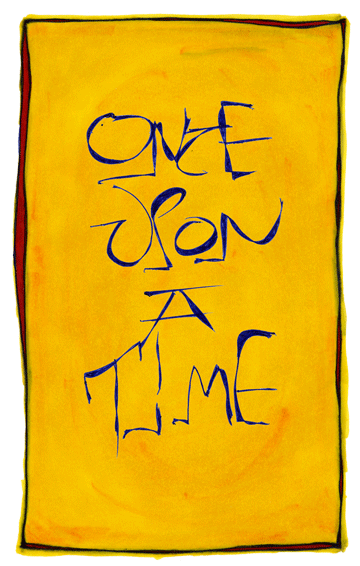 ONCE
UPON
A
TIME